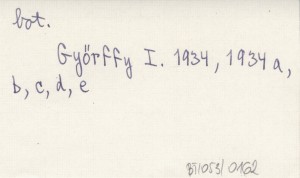 bot.
Györffy I. 1934, 1934 a,
b, c, d, e
BT/053/0162